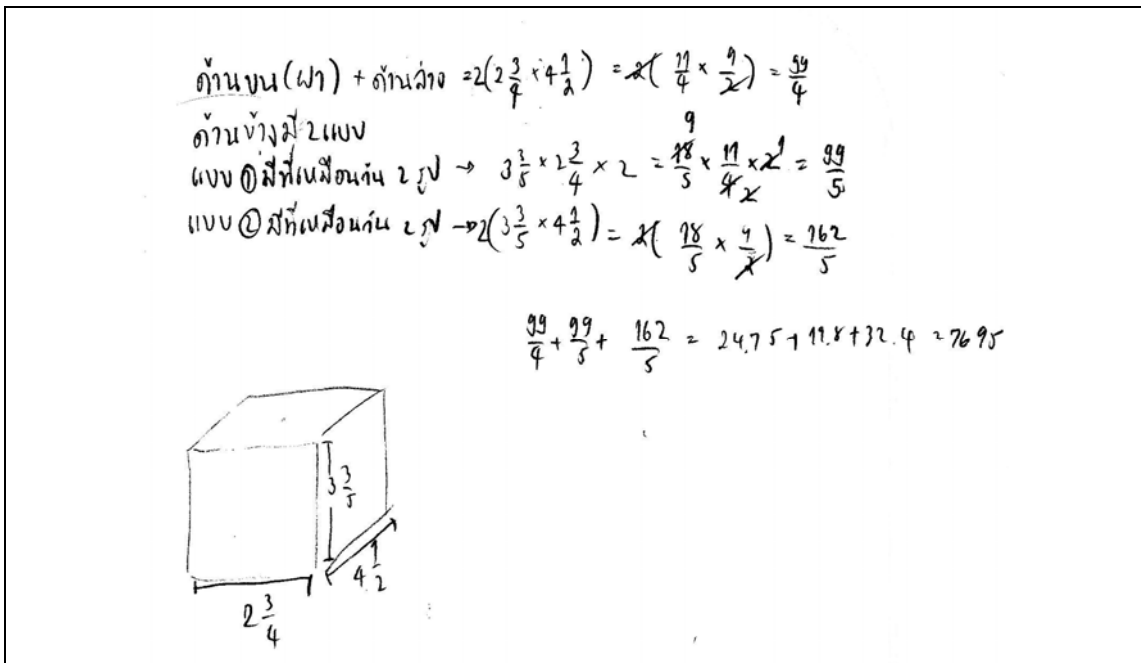 ด้านบน(ฝา) + ด้านล่าง =2(2 3/4 × 4 1/2) = 2(11/4 × 9/2) = 99/4
ด้านข้างมี 2 แบบ
แบบ ① มีที่เหมือนกัน 2 รูป → 3 3/5 × 2 3/4 × 2 = 18/5 9 × 11/4 2 × 2 1 = 99/5
แบบ ② มีที่เหมือนกัน 2 รูป → 2(3 3/5 × 4 1/2) = 2(18/5 × 9/2) = 162/5
99/4 + 99/5 + 162/5 = 24.75 + 19.8 + 32.4 = 76 95
3 3/5
4 1/2
2 3/4